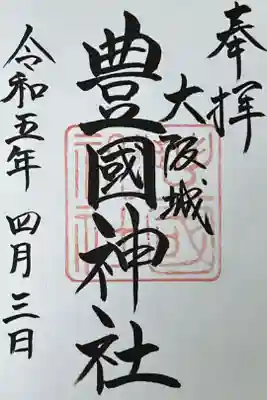 奉拝
大阪城
豊國神社
令和五年 四月三日